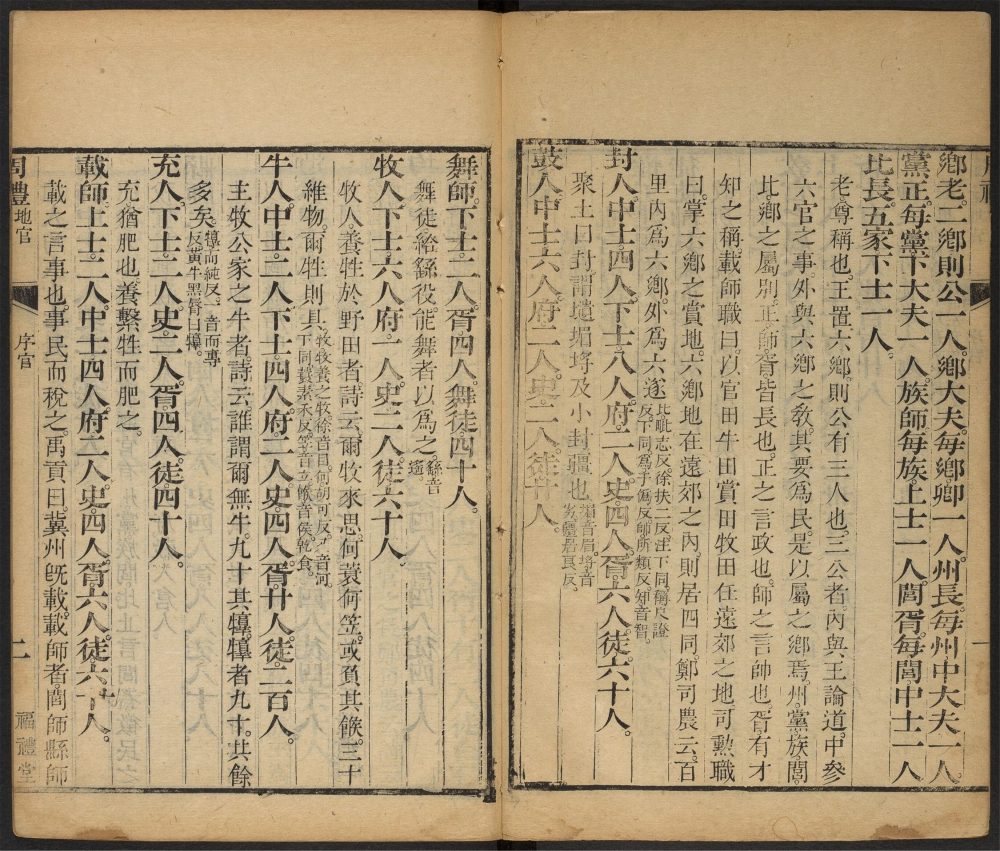 鄉老。二鄉則公一人。鄉大夫。每鄉卿一人。州長。每州中大夫一人。
黨正。每黨下大夫一人。族師。每族。上士一人。閭胥。每閭中士一人。
比長。五家下士一人。
老。尊稱也。王置六鄉。則公有三人也。三公者。內與王論道。中參
六官之事。外與六鄉之教。其要為民。是以屬之鄉焉。州。黨族閭。
比。鄉之屬別。正。師。胥皆長也。正之言政也。師之言帥也。胥有才
知之稱。載師職曰。以官田牛田賞田牧田任遠郊之地。司勳職
曰。掌六鄉之賞地。六鄉地在遠郊之內。則居四同。鄭司農云。百
里內爲六鄉。外爲六遂。
比毗志反。徐扶二反。注下同。稱尺證
反。下同。爲于僞反。師所類反。知音智。
封人。中士四人。下士八人。府二人。史四人。胥六人。徒六十人。
聚土曰封。謂壝堳埒及小封疆也。
堳音眉。埒音
劣。疆居良反。
鼓人。中士六人。府二人。史二人。徒廿人。
舞師。下士二人。胥四人。舞徒四十人。
舞徒給繇役。能舞者以爲之。
繇音
遙。
牧人。下士六人。府一人。史二人。徒六十人。
牧人。養牲於野田者。詩云。爾牧來思。何蓑何笠。或負其餱。三十
維物。爾牲則具。
牧。牧養之牧。徐音目。何胡可反。又音河。
下同。蓑素禾反。笠音立。餱音侯。乾食。
牛人。中士二人。下士四人。府二人。史四人。胥廿人。徒二百人。
主牧公家之牛者。詩云。誰謂爾無牛。九十其犉。犉者九十。其餘
多矣。
犉而純反。一音而專
反。黃牛黑脣曰犉。
充人。下士二人。史二人。胥四人。徒四十人。
充猶肥也。養繫牲而肥之。
載師。上士二人。中士四人。府二人。史四人。胥六人。徒六十人。
載之言事也。事民而稅之。禹貢曰。冀州旣載。載師者。閭師縣師
周禮 地官
序官
二
福禮堂